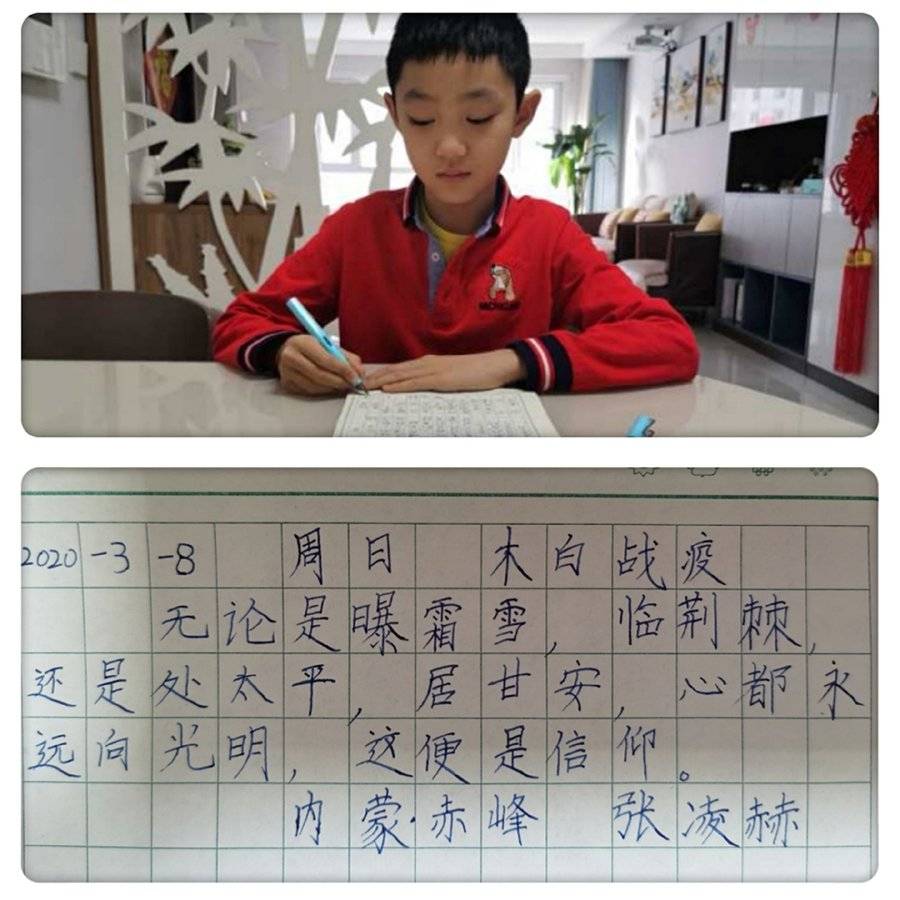 2020-3-8 周日 木白战疫
无论是曝霜雪，临荆棘，
还是处太平，居甘安，心都永
远向光明，这便是信仰。
内蒙·赤峰 张凌赫